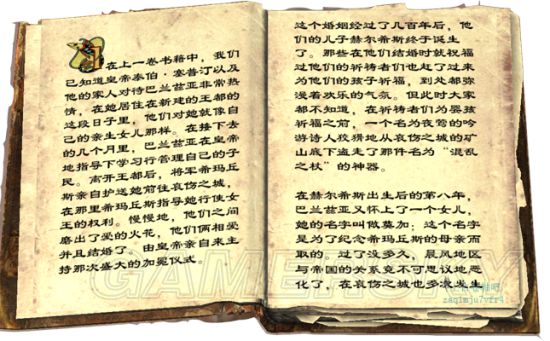 在上一卷书籍中，我们
已知道皇帝泰伯·塞普汀以及
他的家人对待巴兰兹亚非常热
情，在她居住在新建的王都的
这段日子里，他们对她就像自
己的亲生女儿那样。在接下去
的几个月里，巴兰兹亚在皇帝
地指导下学习行管理自己的子
民。离开王都后，将军希玛丘
斯亲自护送她前往哀伤之城，
在那里希玛丘斯指导她行使女
王的权利。慢慢地，他们之间
磨出了爱的火花，他们俩相爱
并且结婚了。由皇帝亲自来主
持那次盛大的加冕仪式。
这个婚姻经过了几百年后，他
们的儿子赫尔希斯终于诞生
了。那些在他们结婚时就祝福
过他们的祈祷者们也赶了过来
为他们的孩子祈福，到处都弥
漫着欢乐的气氛。但此时大家
都不知道，在祈祷者们为婴孩
祈福之前，一个名为夜莺的吟
游诗人狡猾地从哀伤之城的矿
山底下盗走了那件名为“混乱
之杖”的神器。
在赫尔希斯出生后的第八年，
巴兰兹亚又怀上了一个女儿，
她的名字叫做莫加：这个名字
是为了纪念希玛丘斯的母亲而
取的。过了没多久，晨风地区
与帝国的关系竟不可思议地恶
化了，在哀伤之城也多次发生
GAMERSKY
zaqimju7vfr4